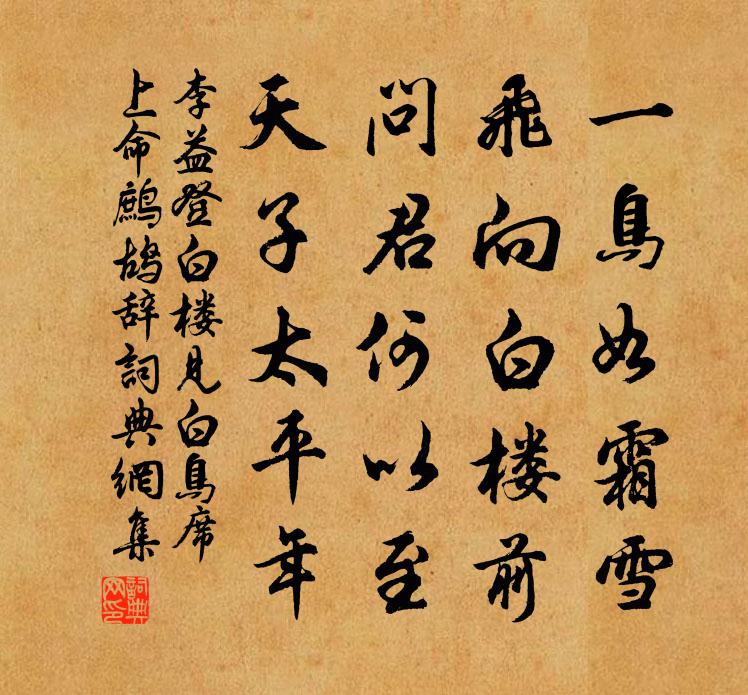 一鳥如霜雪
飛向白楼前
問君何以至
天子太平年
李益登白楼見白鳥席
上命鷓鴣辞詞典網集
詞典网印